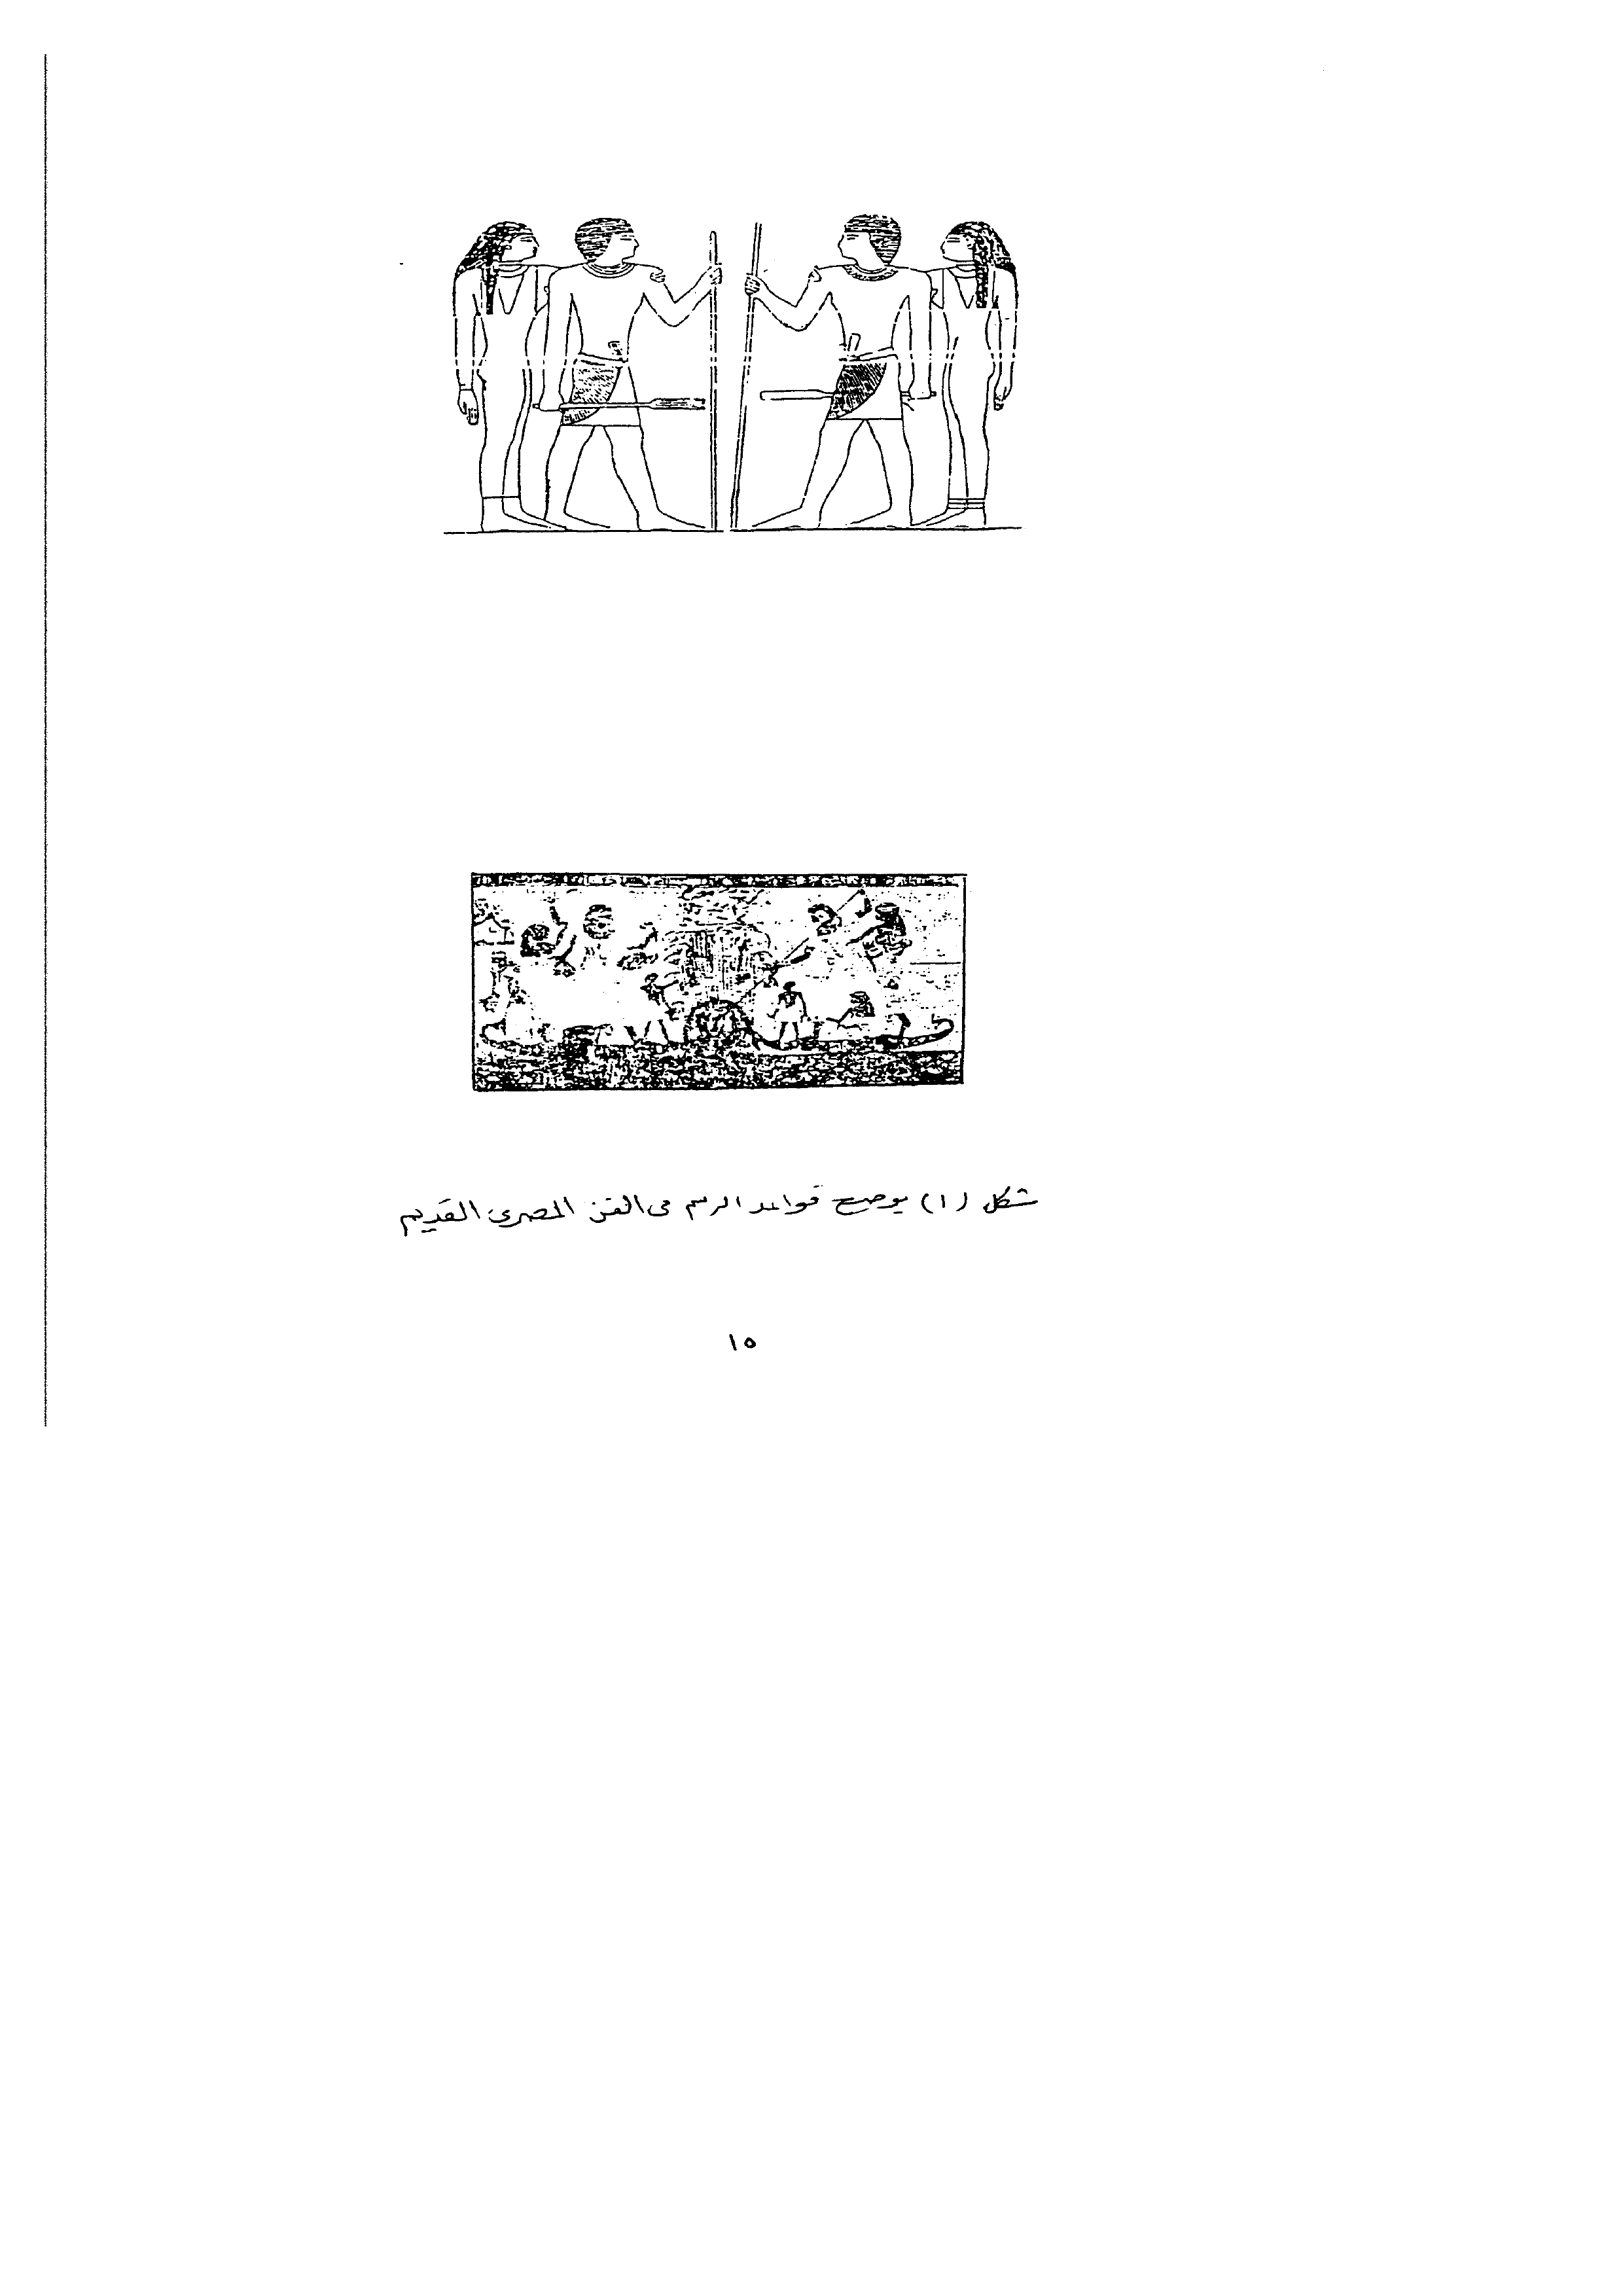 شكل (١) يوضح قواعد الرسم فى الفن المصرى القديم
١٥